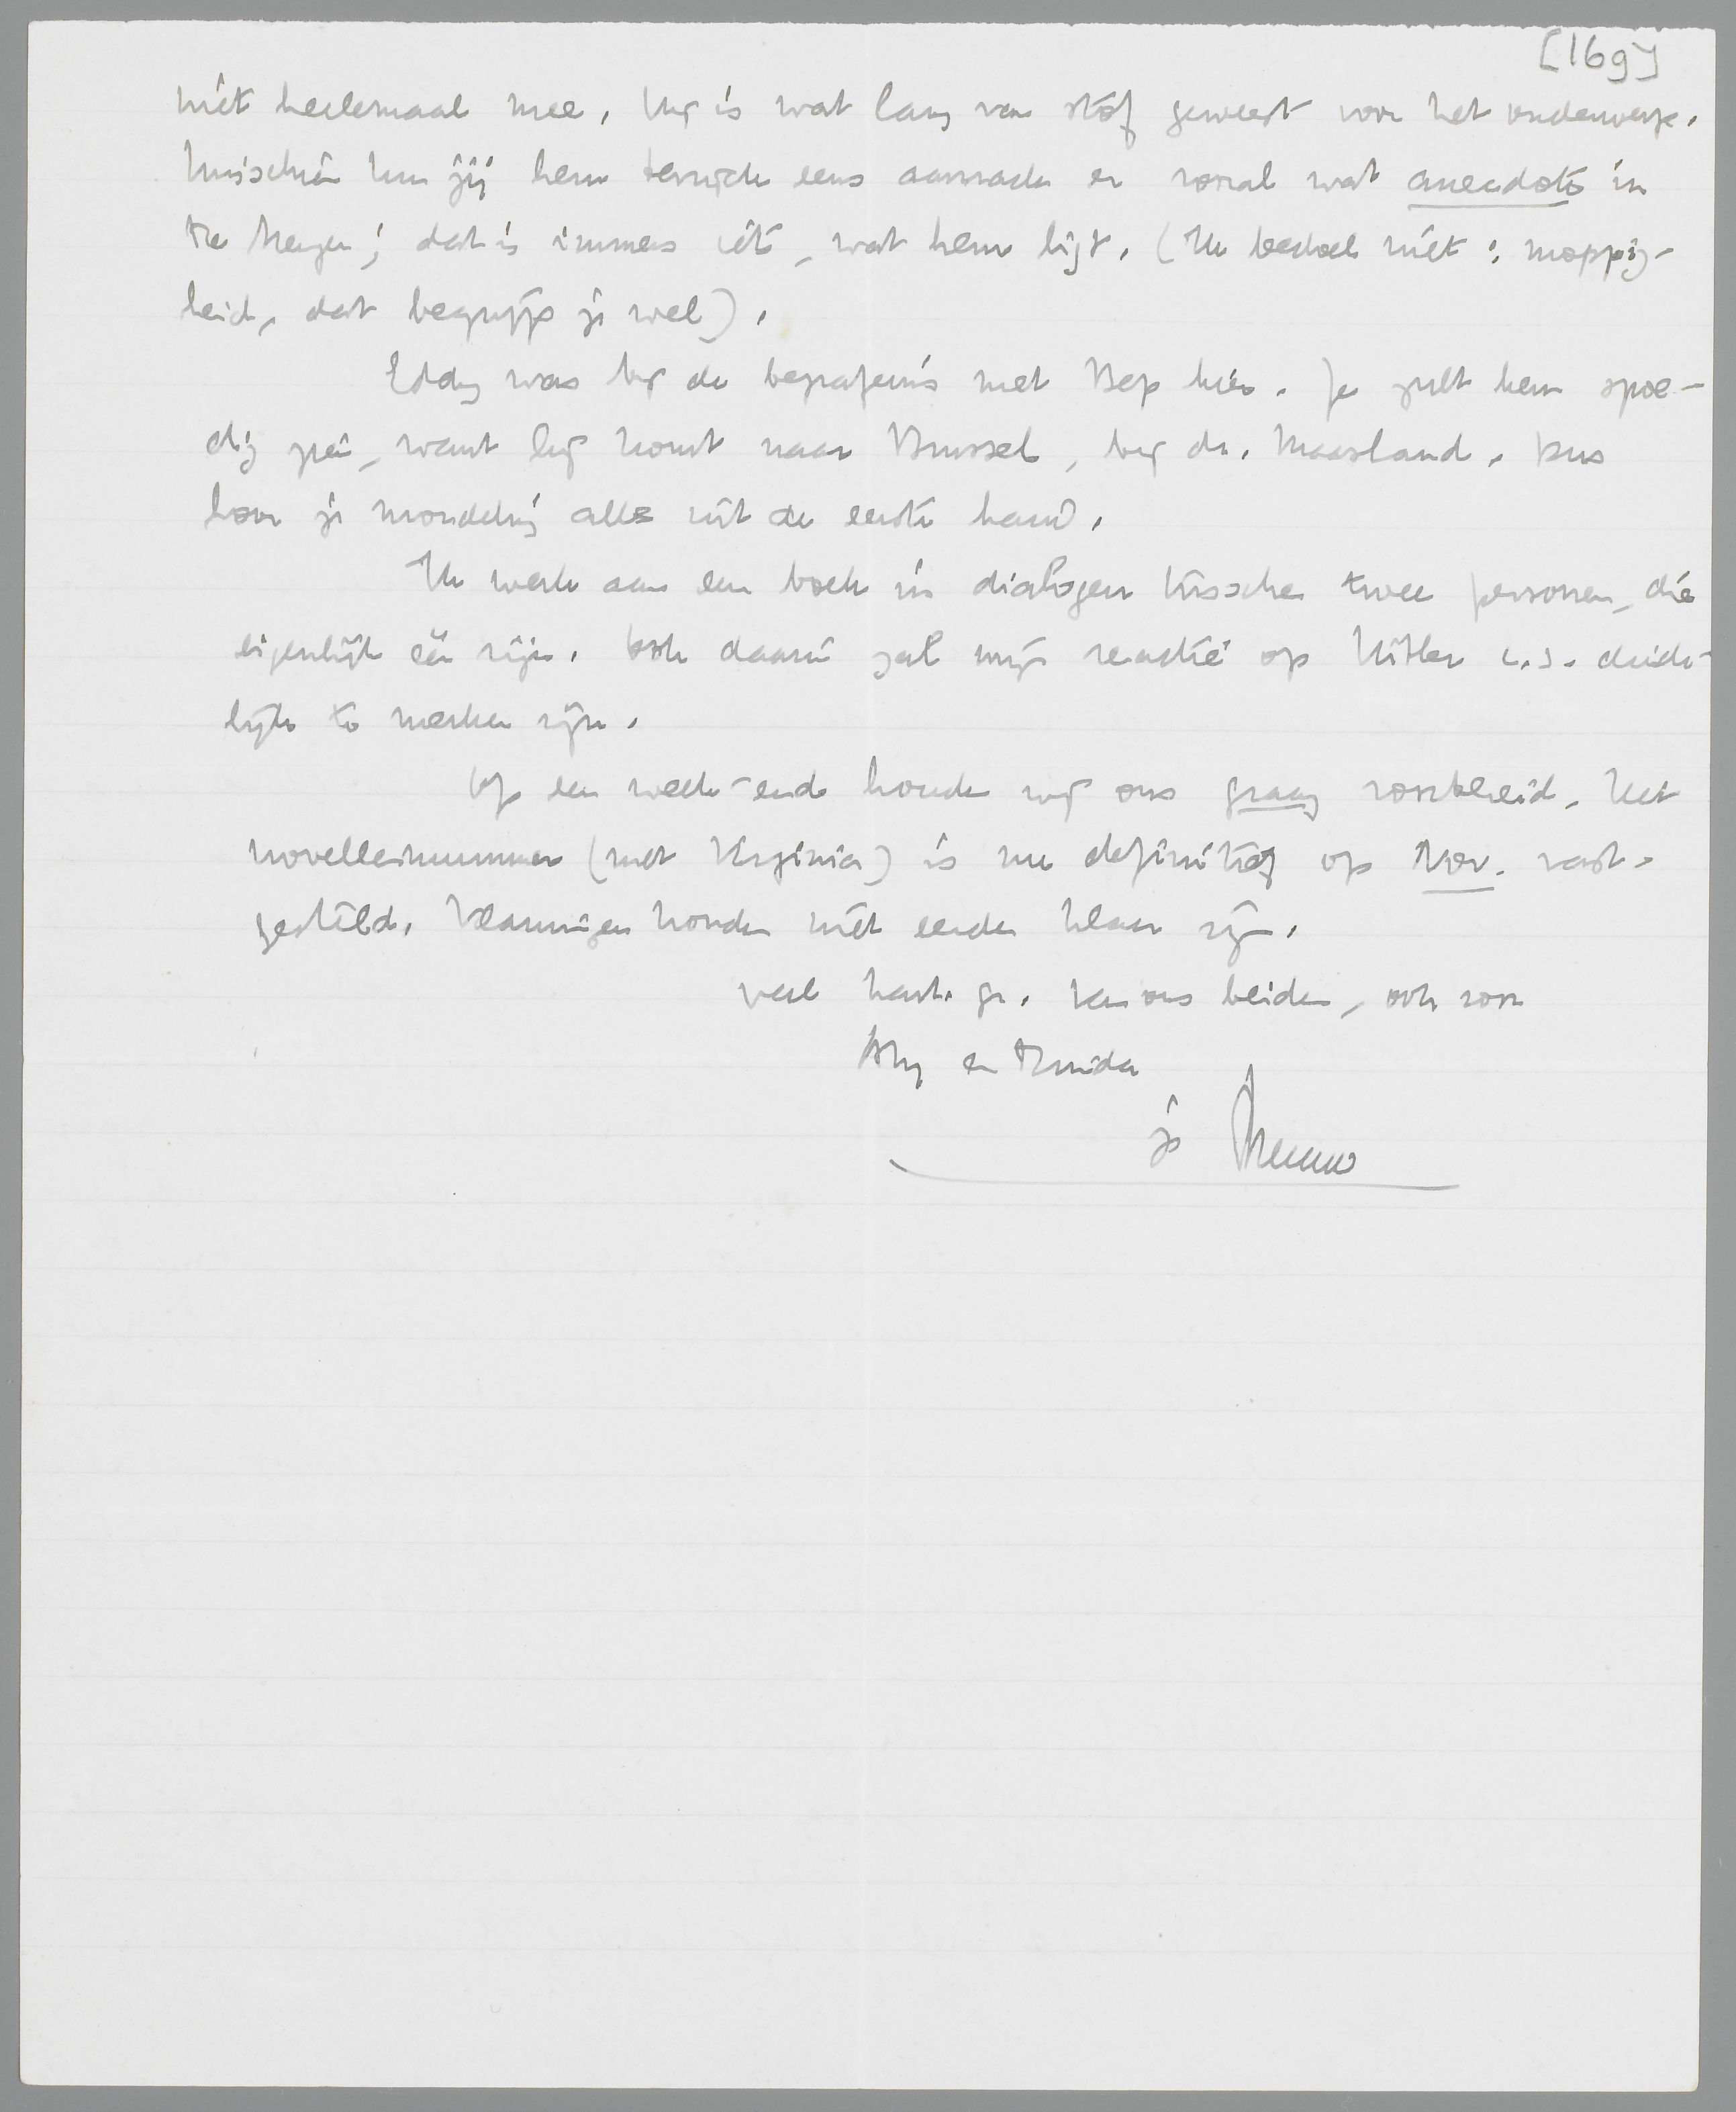 [169]
niet heelemaal mee. Hij is wat lang van stof geweest voor het onderwerp.
Misschien kun jij hem terwijde eens aanraden er vooral wat anecdote in
te krijgen; dat is immers iets, wat hem ligt. (Ik bedoel niet: moppig-
heid, dat begrijp je wel).
Eddy was bij de begrafenis met Bep hier. Je zult hem spoe-
dig zien, want hij komt naar Brussel, bij dr. Maasland. Dus
hoor je mondeling alles uit de eerste hand.
Ik werk aan een boek in dialogen tusschen twee personen, die
eigenlijk één zijn. Ook daarin zal mijn reactie op Hitler c.s. duide-
lijk te merken zijn.
Op een week-end houden wij ons graag voorbereid. Het
novellennummer (met Virginia) is nu definitief op Nov. vast-
gesteld. Vlamingen konden niet eerder klaar zijn.
veel hart. gr. van ons beiden, ook voor
Any en Truida
je Menno